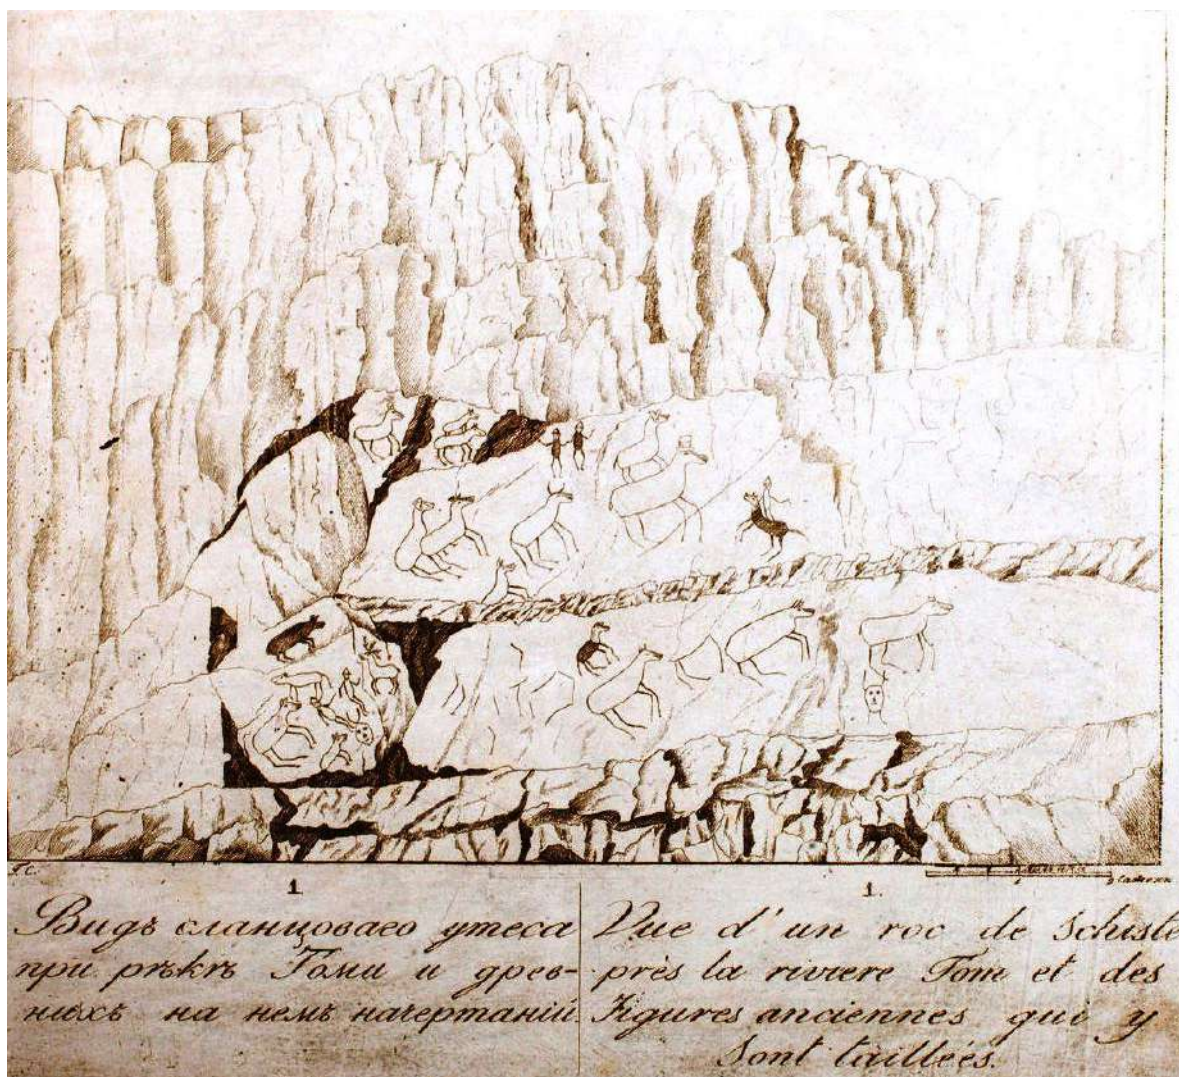 1
Видъ сланцоваго утеса
при рѣкѣ Томи и древ-
нихъ на немъ начертаній.
1.
Vue d'un roc de Schiste
près la riviere Tom et des
Figures anciennes qui y
sont tailleés.